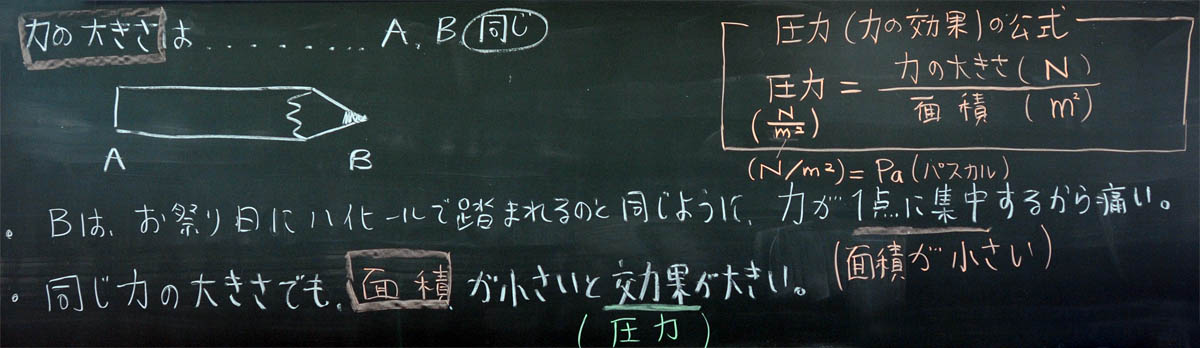 力の大きさは......... A、B 同じ
A
B
圧力(力の効果)の公式
圧力 = 力の大きさ(N) / 面積 (m²)
(N/m²)
(N/m²) = Pa(パスカル)
• Bは、お祭り日にハイヒールで踏まれるのと同じように、力が1点に集中するから痛い。
(面積が小さい)
• 同じ力の大きさでも、面積が小さいと効果が大きい。
(圧力)